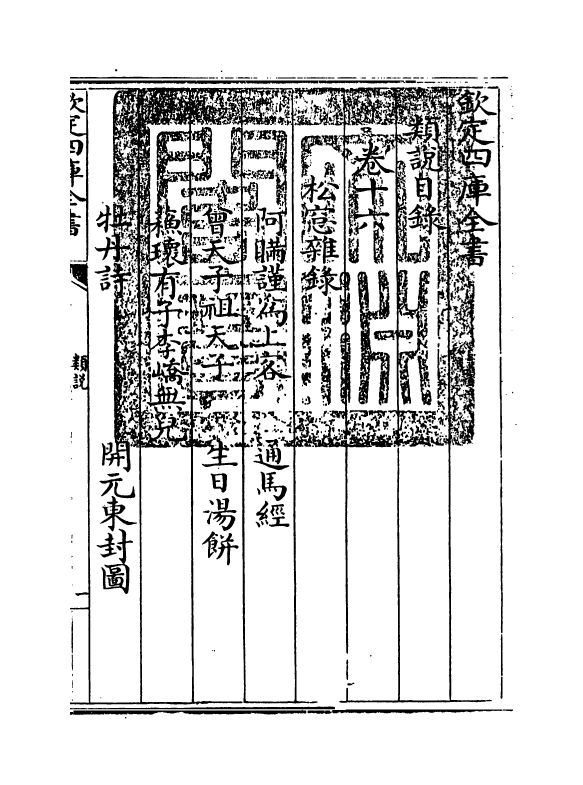 欽定四庫全書
類說目錄
卷十六
松窓雜錄
阿瞞謹為上客 通馬經
曾天子祖天子 生日湯餅
蘇瓌有子李嶠無兒
牡丹詩 開元東封圖
欽定四庫全書
類說
一